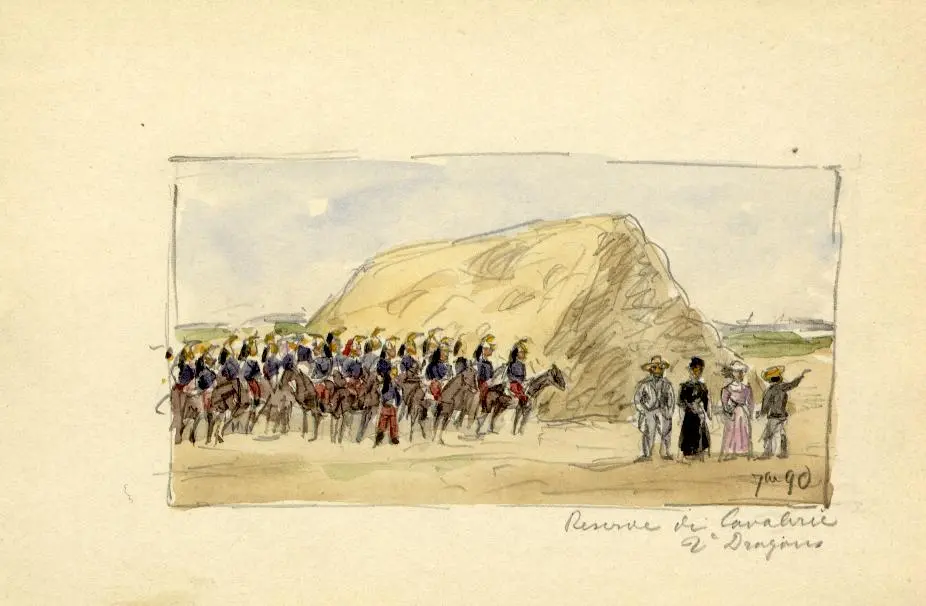 7bre 90
Reserve de Cavalerie
2e Dragons